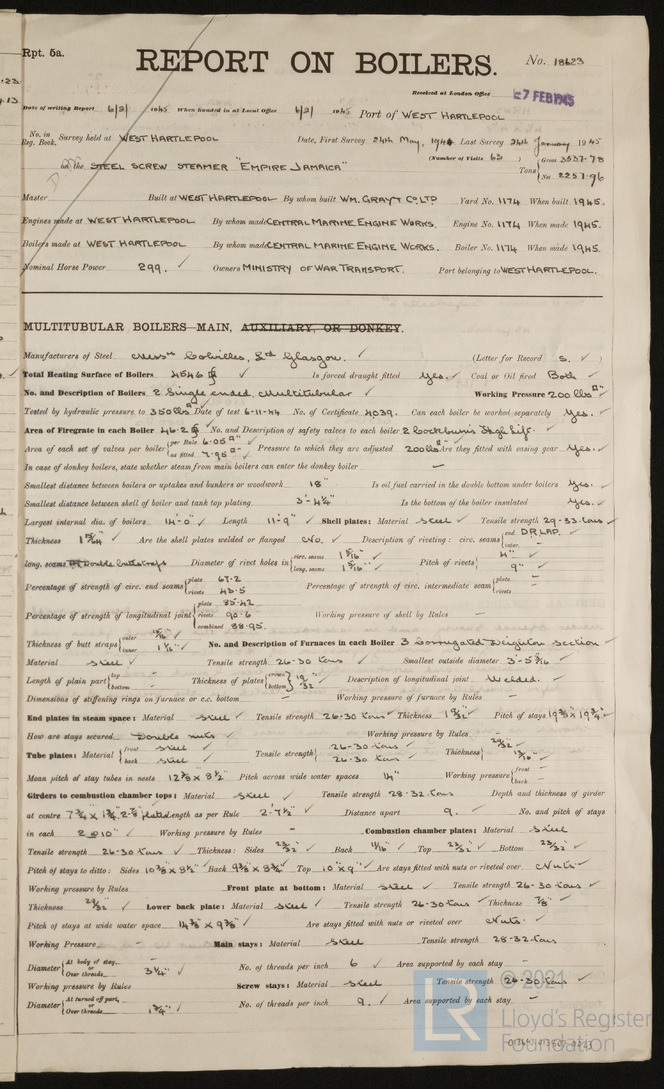 Rpt. 5a.
REPORT ON BOILERS.
No. 18623
Received at London Office
27 FEB 1945
Date of writing Report 6/2/ 1945 When handed in at Local Office 6/2/ 1945 Port of WEST HARTLEPOOL
No. in Reg. Book. Survey held at WEST HARTLEPOOL Date, First Survey 24th May, 1944 Last Survey 24th January 1945
(Number of Visits 63)
on the STEEL SCREW STEAMER "EMPIRE JAMAICA" Tons Gross 3537.78 Net 2257.96
Master Built at WEST HARTLEPOOL By whom built WM. GRAY & CO LTD Yard No. 1174 When built 1945.
Engines made at WEST HARTLEPOOL By whom made CENTRAL MARINE ENGINE WORKS. Engine No. 1174 When made 1945.
Boilers made at WEST HARTLEPOOL By whom made CENTRAL MARINE ENGINE WORKS. Boiler No. 1174 When made 1945.
Nominal Horse Power 299. Owners MINISTRY OF WAR TRANSPORT. Port belonging to WEST HARTLEPOOL.
MULTITUBULAR BOILERS—MAIN, AUXILIARY, OR DONKEY.
Manufacturers of Steel Messrs Colvilles, Ltd Glasgow. (Letter for Record S. )
Total Heating Surface of Boilers 4546 Is forced draught fitted Yes. Coal or Oil fired Both
No. and Description of Boilers 2 Single ended, Multitubular Working Pressure 200 lbs
Tested by hydraulic pressure to 350 lbs Date of test 6-11-44 No. of Certificate 4039. Can each boiler be worked separately Yes.
Area of Firegrate in each Boiler 46.2 No. and Description of safety valves to each boiler 2 Cockburn's High lift.
Area of each set of valves per boiler per Rule 6.05 as fitted 7.95 Pressure to which they are adjusted 200 lbs Are they fitted with easing gear Yes.
In case of donkey boilers, state whether steam from main boilers can enter the donkey boiler –
Smallest distance between boilers or uptakes and bunkers or woodwork 18" Is oil fuel carried in the double bottom under boilers Yes.
Smallest distance between shell of boiler and tank top plating 3'-4¼" Is the bottom of the boiler insulated Yes.
Largest internal dia. of boilers 14'-0" Length 11'-9" Shell plates: Material Steel Tensile strength 29-33 tons
Thickness Are the shell plates welded or flanged No. Description of riveting: circ. seams end D.R.LAP. inter. –
long. seams Double butt straps Diameter of rivet holes in circ. seams 1 5/16" long. seams 1 5/16" Pitch of rivets 4" 9"
Percentage of strength of circ. end seams plate 67.2 rivets 43.5 Percentage of strength of circ. intermediate seam plate – rivets –
Percentage of strength of longitudinal joint plate 85.42 rivets 90.6 combined 88.95 Working pressure of shell by Rules –
Thickness of butt straps outer 15/16" inner 1 1/16" No. and Description of Furnaces in each Boiler 3 Corrugated Deighton section
Material Steel Tensile strength 26-30 tons Smallest outside diameter 3'-5 3/16
Length of plain part top – bottom – Thickness of plates crown bottom 19/32 Description of longitudinal joint Welded.
Dimensions of stiffening rings on furnace or c.c. bottom – Working pressure of furnace by Rules –
End plates in steam space: Material Steel Tensile strength 26-30 tons Thickness Pitch of stays 19¾ x 19¾
How are stays secured Double nuts Working pressure by Rules –
Tube plates: Material front Steel back Steel Tensile strength 26-30 tons 26-30 tons Thickness 29/32" 13/16"
Mean pitch of stay tubes in nests 12⅜ x 8½" Pitch across wide water spaces 14" Working pressure front – back –
Girders to combustion chamber tops: Material Steel Tensile strength 28-32 tons Depth and thickness of girder
at centre Length as per Rule 2'-7½" Distance apart 9. No. and pitch of stays
in each 2 @ 10" Working pressure by Rules – Combustion chamber plates: Material Steel
Tensile strength 26-30 tons Thickness: Sides 23/32" Back 11/16" Top 23/32" Bottom 23/32"
Pitch of stays to ditto: Sides 10⅜ x 8½" Back 9⅜ x 8¾" Top 10" x 9" Are stays fitted with nuts or riveted over Nuts
Working pressure by Rules Front plate at bottom: Material Steel Tensile strength 26-30 tons
Thickness 29/32" Lower back plate: Material Steel Tensile strength 26-30 tons Thickness ⅞"
Pitch of stays at wide water space 14⅜ x 9⅜ Are stays fitted with nuts or riveted over Nuts.
Working Pressure – Main stays: Material Steel Tensile strength 28-32 tons
Diameter At body of stay, or Over threads 3¼" No. of threads per inch 6 Area supported by each stay –
Working pressure by Rules – Screw stays: Material Steel Tensile strength 26-30 tons
Diameter At turned off part, or Over threads 1¾" No. of threads per inch 9. Area supported by each stay –
© 2021
LR
Lloyd's Register
Foundation